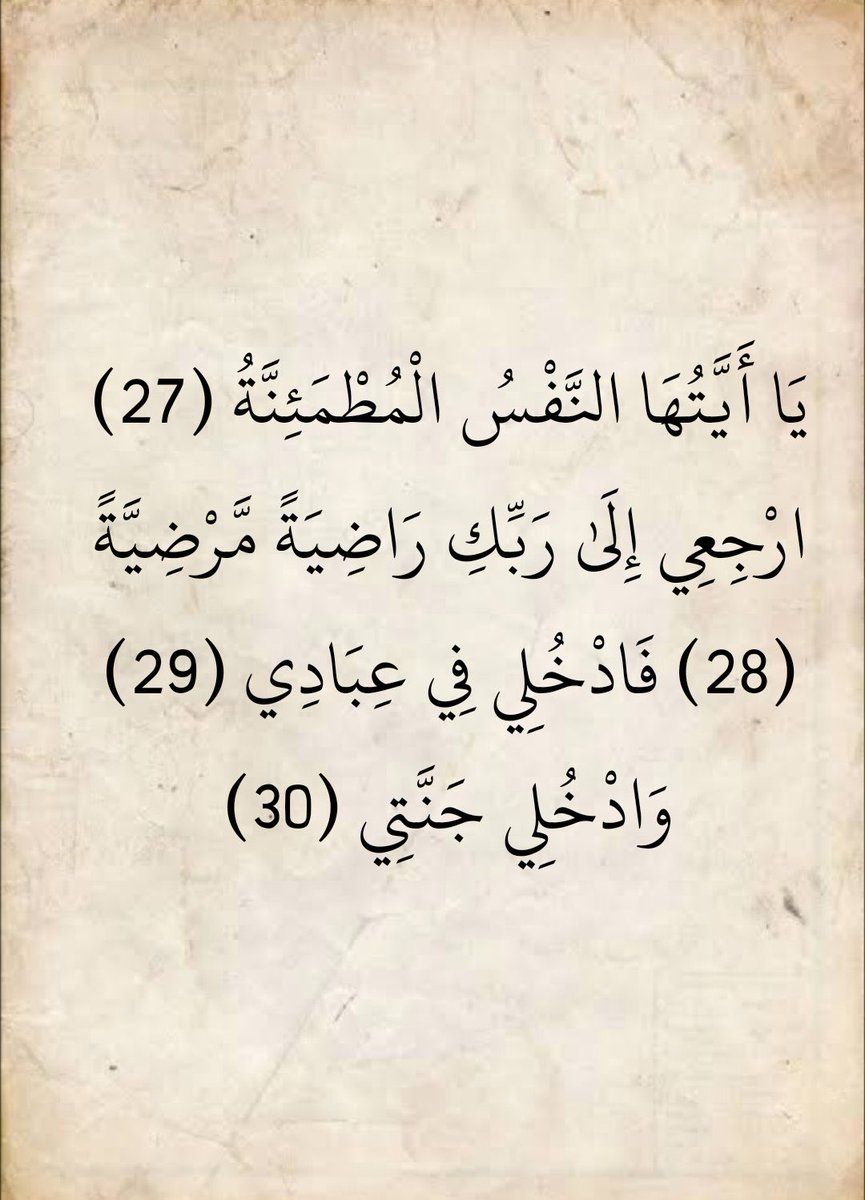 يَا أَيَّتُهَا النَّفْسُ الْمُطْمَئِنَّةُ (27)
ارْجِعِي إِلَىٰ رَبِّكِ رَاضِيَةً مَّرْضِيَّةً
(28) فَادْخُلِي فِي عِبَادِي (29)
وَادْخُلِي جَنَّتِي (30)